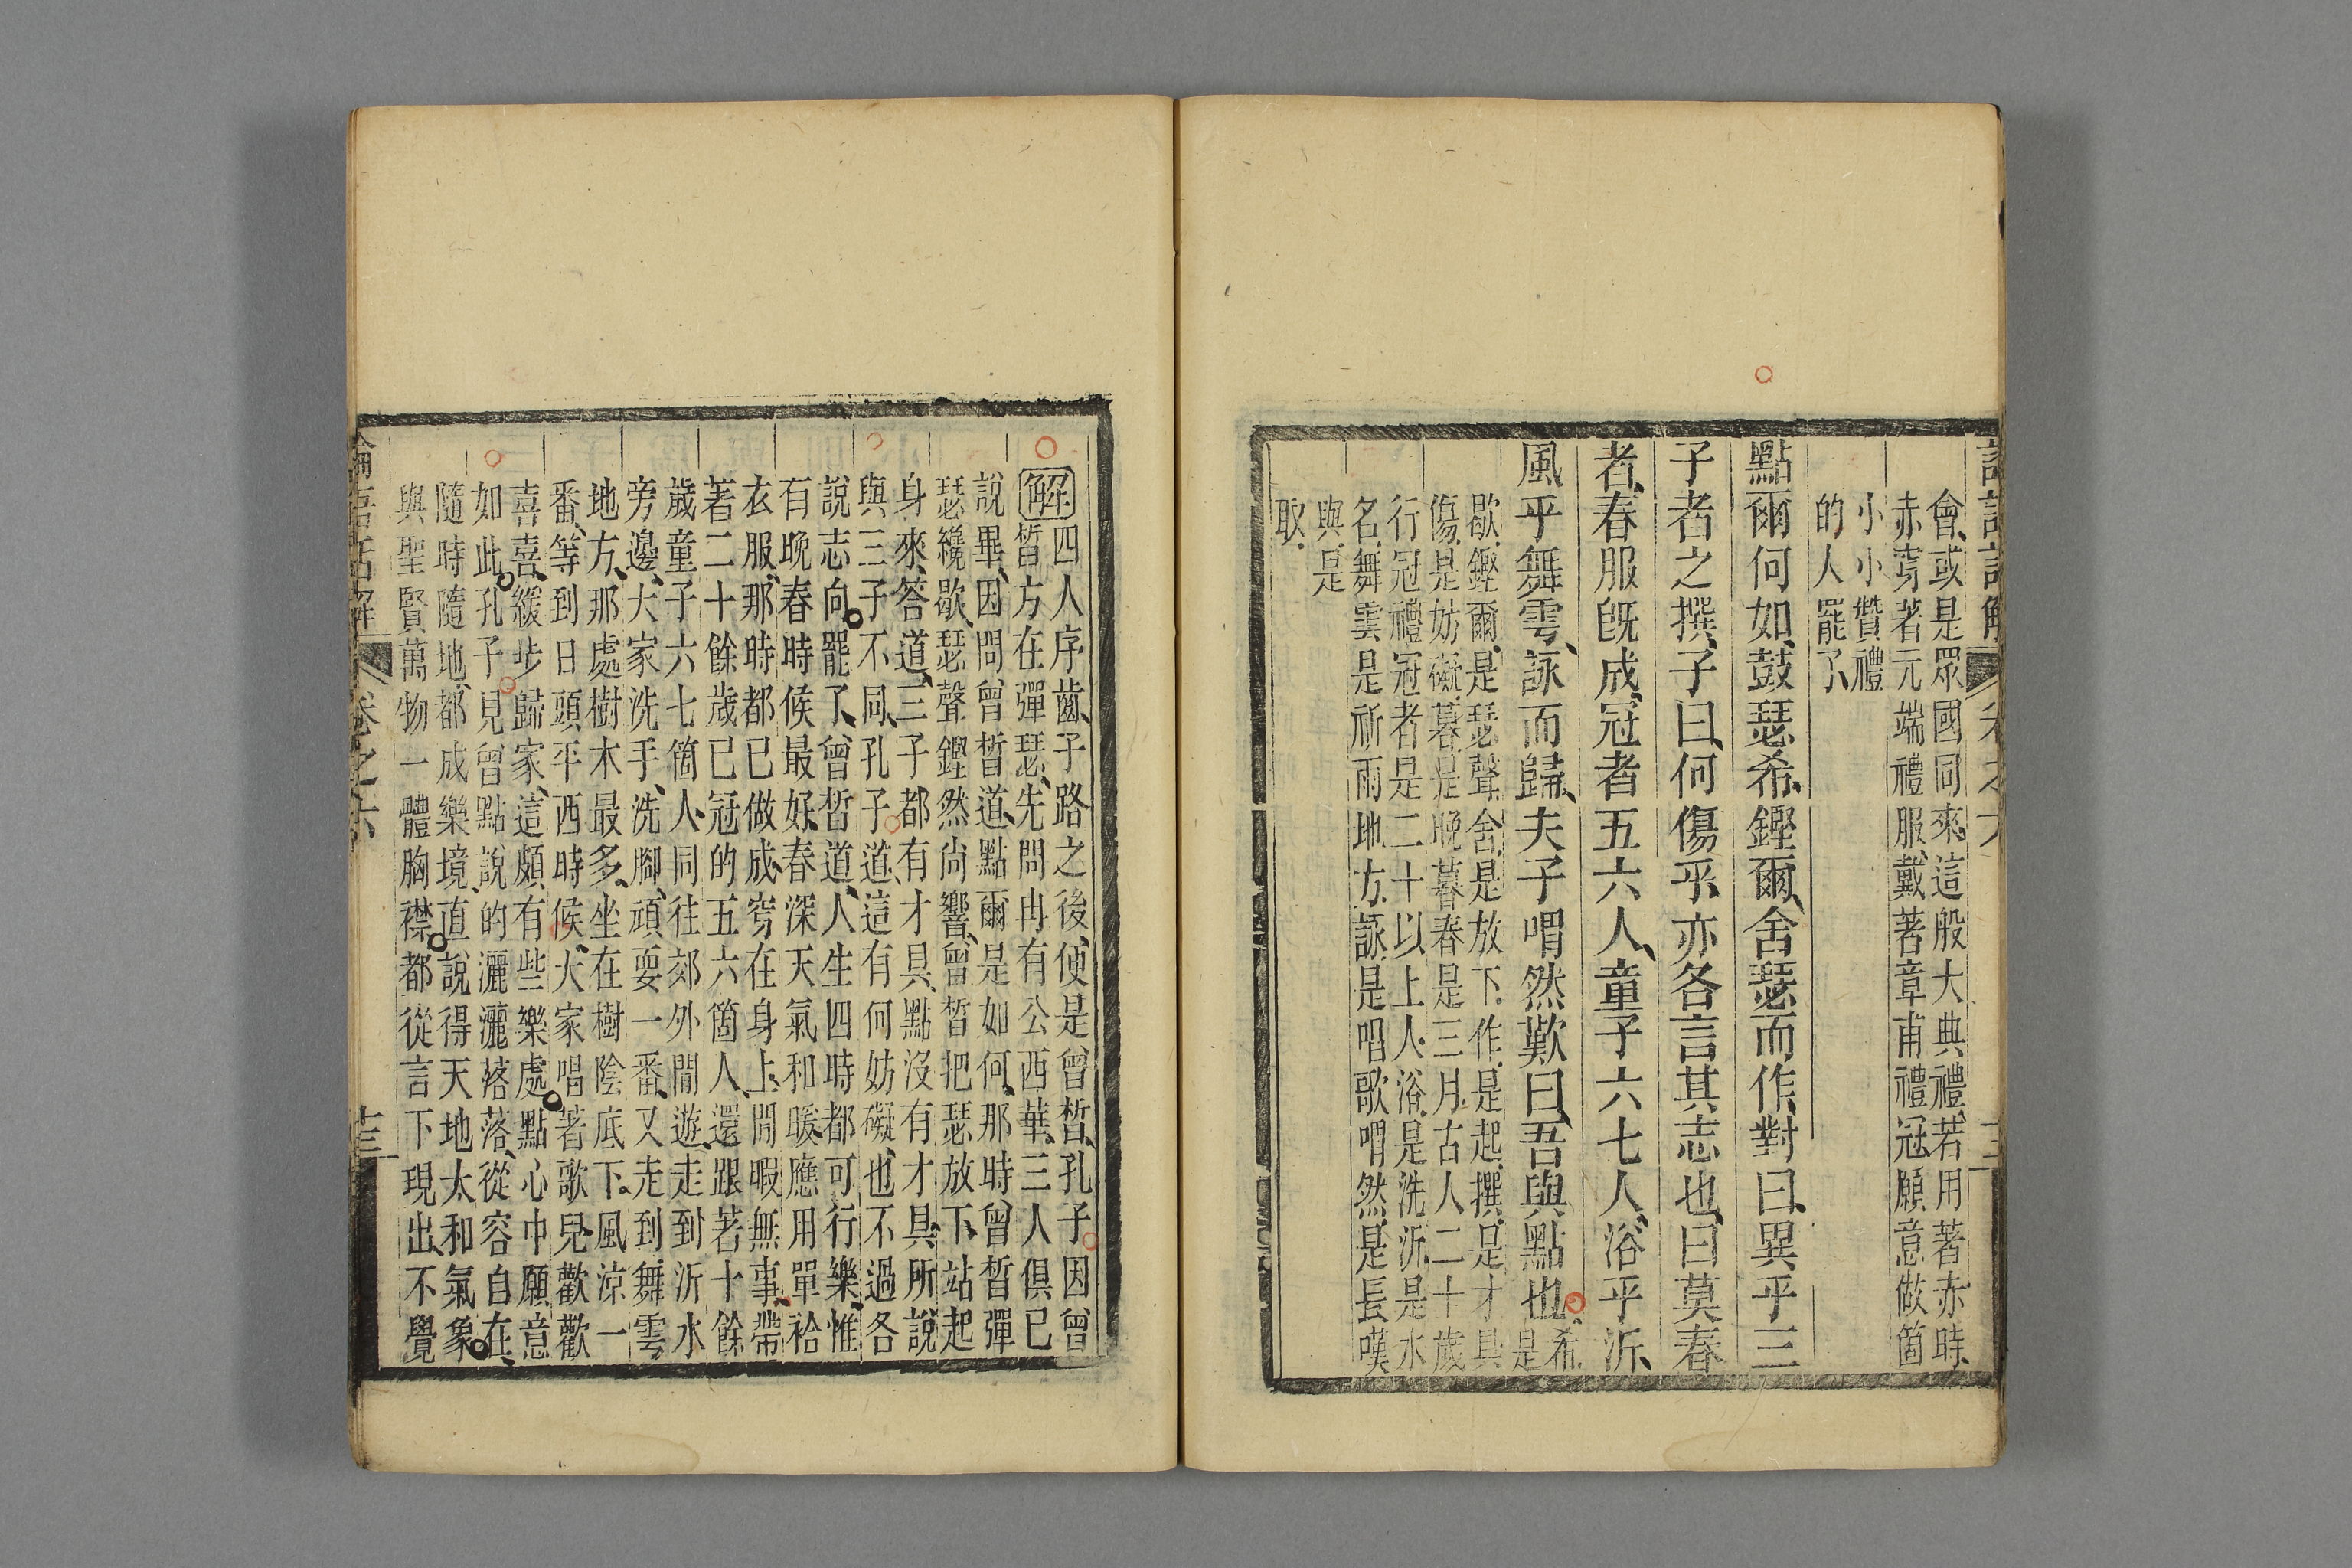 會、或是眾國同來、這般大典禮、若用著赤時、
赤寄著元端禮服、戴著章甫禮冠、願意做箇
小小贊禮
的人罷了、
點爾何如、鼓瑟希、鏗爾、舍瑟而作、對曰、異乎三
子者之撰、子曰、何傷乎、亦各言其志也、曰莫春
者、春服旣成、冠者五六人、童子六七人、浴乎沂、
風乎舞雩、詠而歸、夫子喟然歎曰、吾與點也、希、是
歇、鏗爾、是瑟聲、舍、是放下、作、是起、撰、是才具
傷、是妨礙、暮、是晚、暮春是三月、古人二十歲
行冠禮、冠者是二十以上人、浴、是洗、沂、是水
名、舞雩是祈雨地方、詠、是唱歌、喟然、是長嘆
與、是
取、
解四人序齒、子路之後、便是曾皙、孔子因曾
皙方在彈瑟、先問冉有公西華、三人俱已
說畢、因問曾皙道、點爾是如何、那時曾皙彈
瑟纔歇、瑟聲鏗然尚響、曾皙把瑟放下、站起
身來、答道、三子都有才具、點沒有才具、所說
與三子不同、孔子道、這有何妨礙、也不過各
說志向罷了、曾皙道、人生四時都可行樂、惟
有晚春時候最好、春深天氣和暖、應用單袷
衣服、那時都已做成、穿在身上、閒暇無事、帶
著二十餘歲已冠的五六箇人、還跟著十餘
歲童子六七箇人、同往郊外閒遊、走到沂水
旁邊、大家洗手、洗腳、頑耍一番、又走到舞雩
地方、那處樹木最多、坐在樹陰底下、風涼一
番、等到日頭平西時候、大家唱著歌兒、歡歡
喜喜、緩步歸家、這頗有些樂處、點心中願意
如此、孔子見曾點說的灑灑落落、從容自在、
隨時隨地、都成樂境、直說得天地太和氣象、
與聖賢萬物一體胸襟、都從言下現出、不覺
論語話解 卷之六 十三